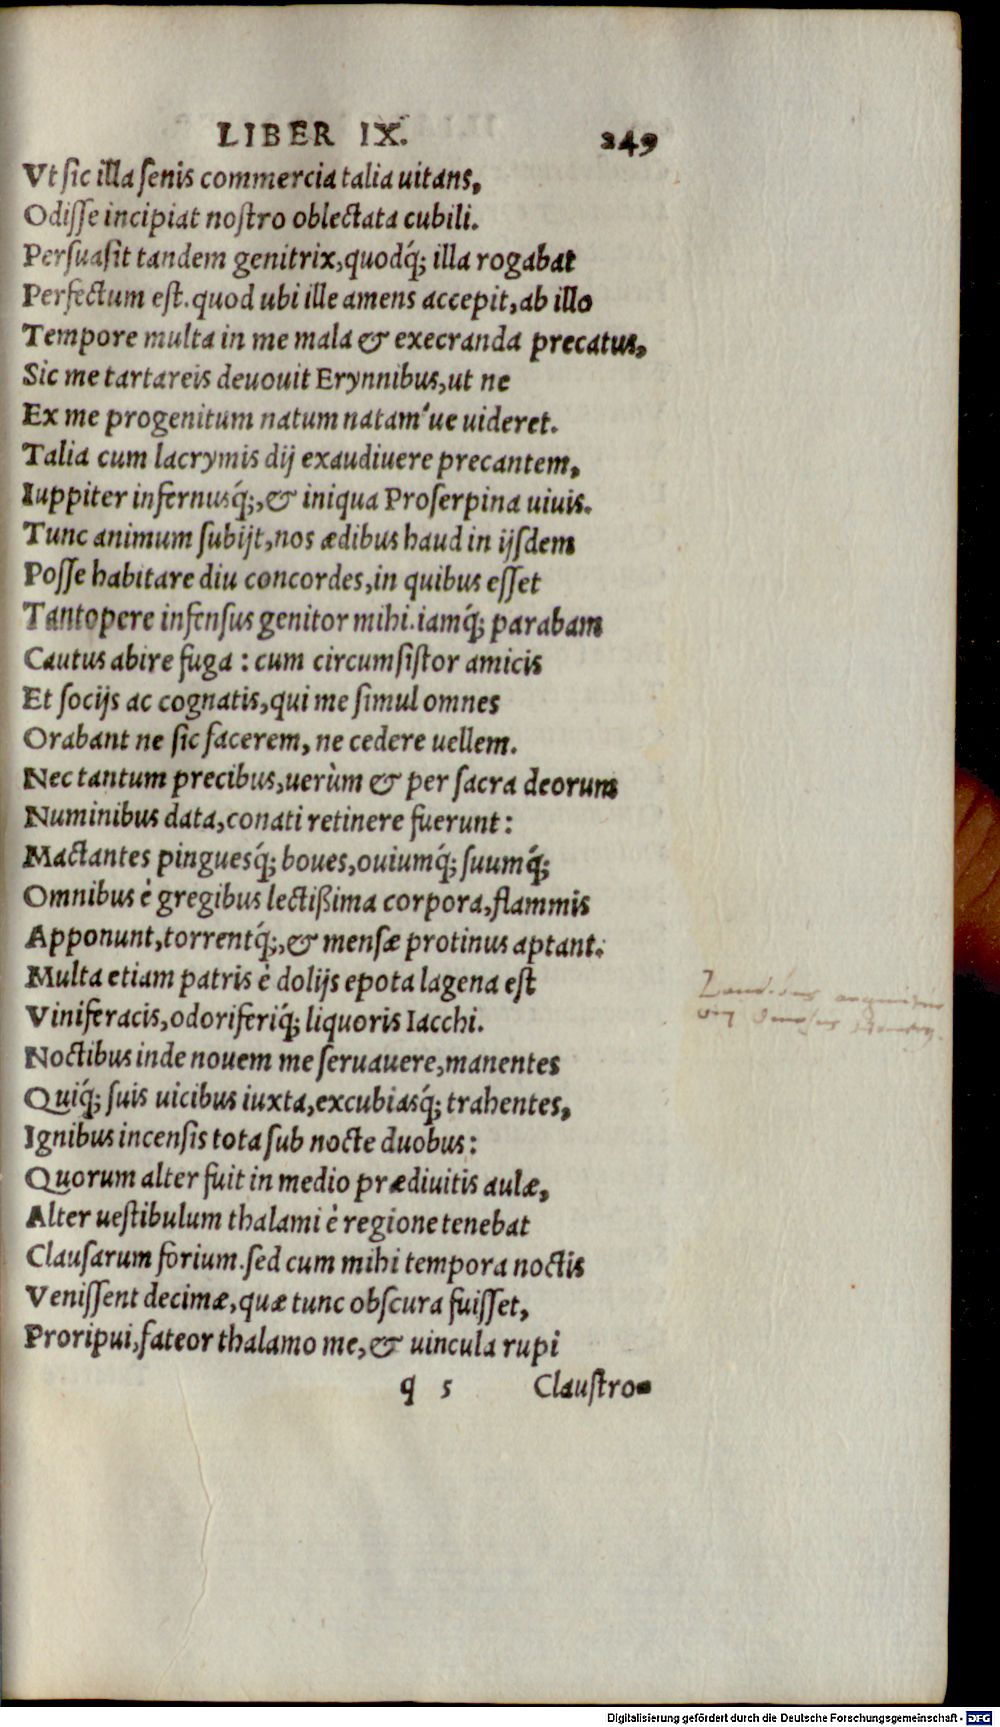 LIBER IX. 249
Vt sic illa senis commercia talia uitans,
Odisse incipiat nostro oblectata cubili.
Persuasit tandem genitrix, quodq́; illa rogabat
Perfectum est. quod ubi ille amens accepit, ab illo
Tempore multa in me mala & execranda precatus,
Sic me tartareis deuouit Erynnibus, ut ne
Ex me progenitum natum natam'ue uideret.
Talia cum lacrymis dij exaudiuere precantem,
Iuppiter infernusq́;, & iniqua Proserpina uiuis.
Tunc animum subijt, nos ædibus haud in ijsdem
Posse habitare diu concordes, in quibus esset
Tantopere infensus genitor mihi. iamq́; parabam
Cautus abire fuga : cum circumsistor amicis
Et socijs ac cognatis, qui me simul omnes
Orabant ne sic facerem, ne cedere uellem.
Nec tantum precibus, uerùm & per sacra deorum
Numinibus data, conati retinere fuerunt :
Mactantes pinguesq́; boues, ouiumq́; suumq́;
Omnibus è gregibus lectißima corpora, flammis
Apponunt, torrentq́;, & mensæ protinus aptant.
Multa etiam patris è dolijs epota lagena est
Viniferacis, odoriferiq́; liquoris Iacchi.
Noctibus inde nouem me seruauere, manentes
Quiq́; suis uicibus iuxta, excubiasq́; trahentes,
Ignibus incensis tota sub nocte duobus :
Quorum alter fuit in medio prædiuitis aulæ,
Alter uestibulum thalami è regione tenebat
Clausarum forium. sed cum mihi tempora noctis
Venissent decimæ, quæ tunc obscura fuisset,
Proripui, fateor thalamo me, & uincula rupi
q 5 Claustro-
Digitalisierung gefördert durch die Deutsche Forschungsgemeinschaft - DFG